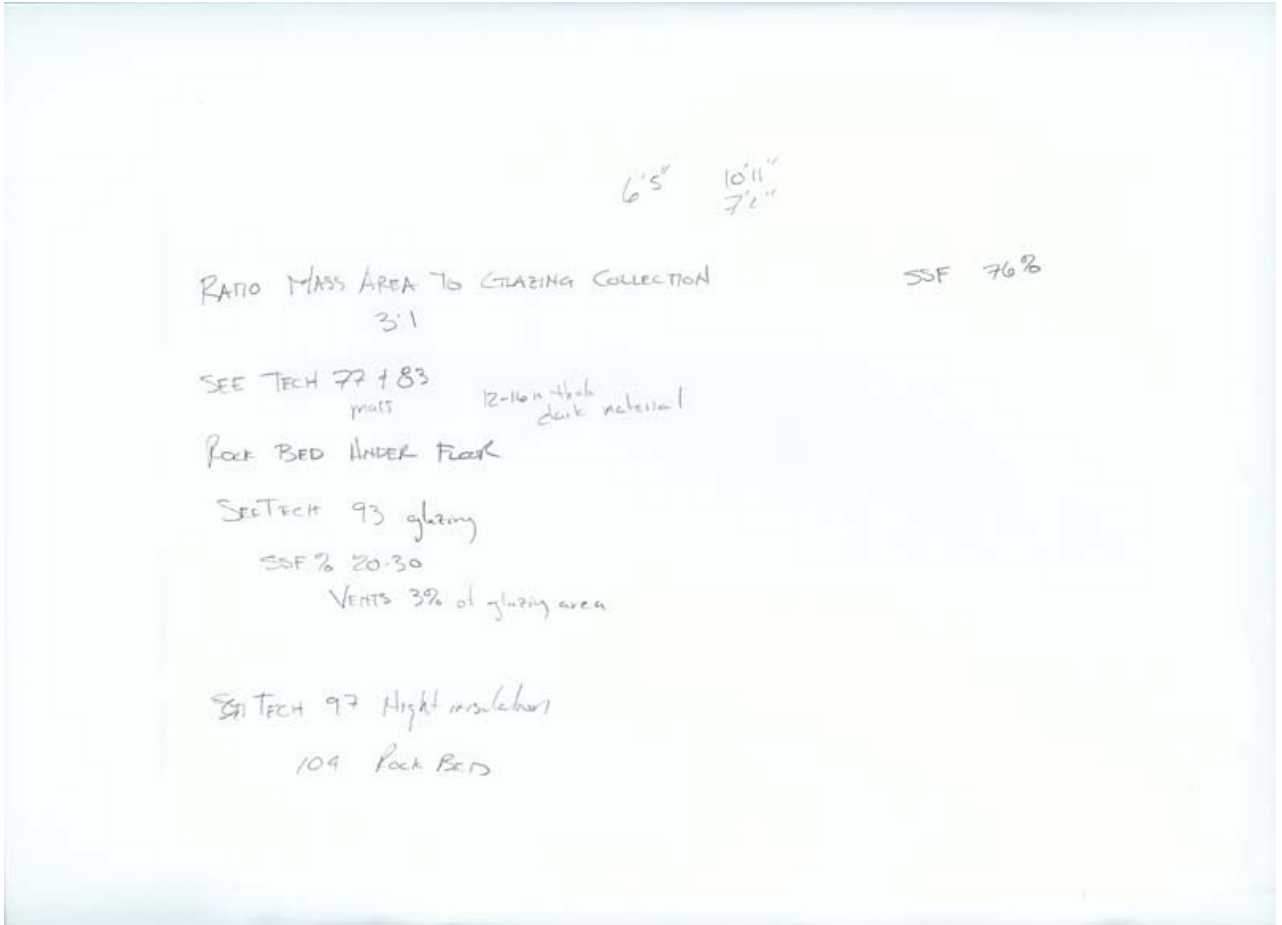 6'5" 10'11"
RATIO MASS AREA TO GLAZING COLLECTION SSF 76%
3:1
SEE TECH 77 + 83
12-16 in
dark material
ROCK BED UNDER FLOOR
SEE TECH 93 glazing
SSF % 20-30
VENTS 3% of glazing area
TECH 97 Night insulation
ROCK BED